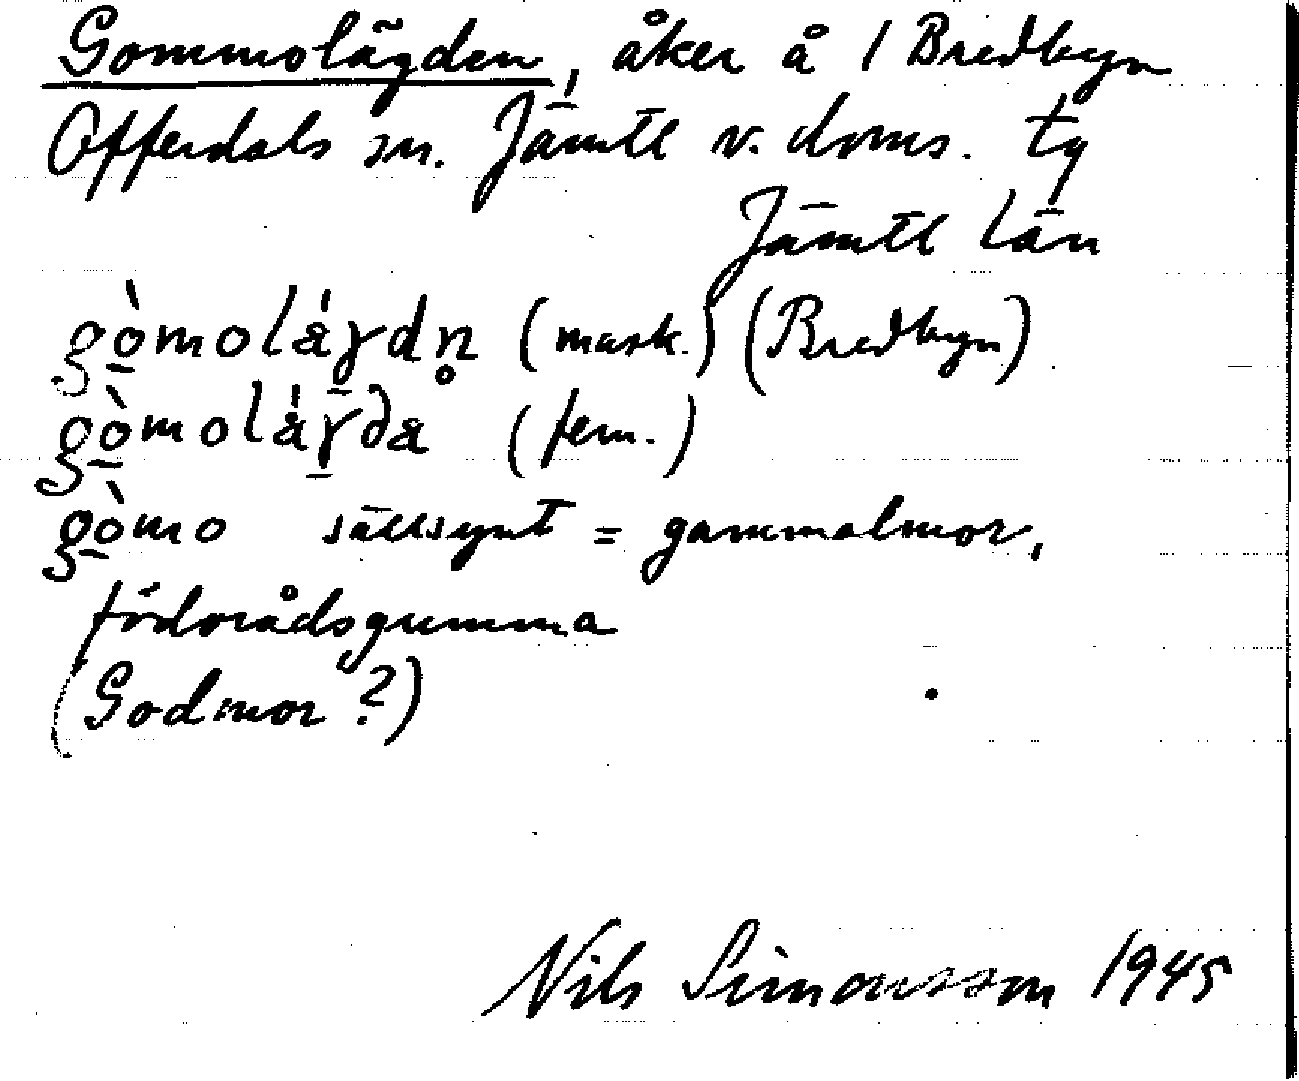 Gommolägden, åker å 1 Bredbyn
Offerdals sn. Jämtl v. doms. tg
Jämtl län
gò̱moláɣdn̥ (mask.) (Bredbyn)
gò̱moláɣ̱da (fem.)
gò̱mo sällsynt = gammalmor,
födorådsgumma
(Godmor?)
Nils Simonsson 1945